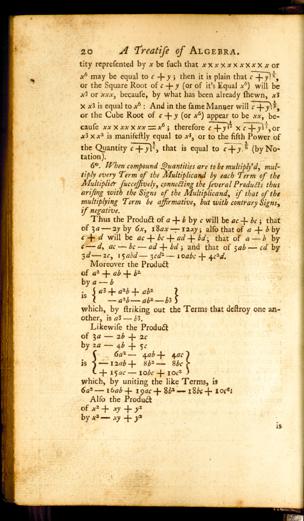 20 A Treatise of ALGEBRA.
tity represented by x be such that xxxxxxxxxx or
x⁶ may be equal to c + y; then it is plain that
or the Square Root of c + y (or of it's Equal x⁶) will be
x3 or xxx, because, by what has been already shewn, x3
× x3 is equal to x⁶: And in the same Manner will
or the Cube Root of c + y (or x⁶) appear to be xx, be-
cause xx × xx × xx = x⁶; therefore
x3 × x² is manifestly equal to x⁵, or to the fifth Power of
the Quantity, that is equal to (by No-
tation).
6°. When compound Quantities are to be multiply'd, mul-
tiply every Term of the Multiplicand by each Term of the
Multiplier successively, connecting the several Products thus
arising with the Signs of the Multiplicand, if that of the
multiplying Term be affirmative, but with contrary Signs,
if negative.
Thus the Product of a + b by c will be ac + bc; that
of 3a — 2y by 6x, 18ax — 12xy; also that of a + b by
c + d will be ac + bc + ad + bd; that of a — b by
c — d, ac — bc — ad + bd; and that of 5ab — cd by
3d — 2c, 15abd — 3cd² — 10abc + 4c²d.
Moreover the Product
of a² + ab + b²
by a — b
is { a3 + a²b + ab²
— a²b — ab² — b3 }
which, by striking out the Terms that destroy one an-
other, is a3 — b3.
Likewise the Product
of 3a — 2b + 2c
by 2a — 4b + 5c
6a² — 4ab + 4ac
is { — 12ab + 8b² — 8bc }
+ 15ac — 10bc + 10c²
which, by uniting the like Terms, is
6a² — 16ab + 19ac + 8b² — 18bc + 10c²:
Also the Product
of x² + xy + y²
by x² — xy + y²
is